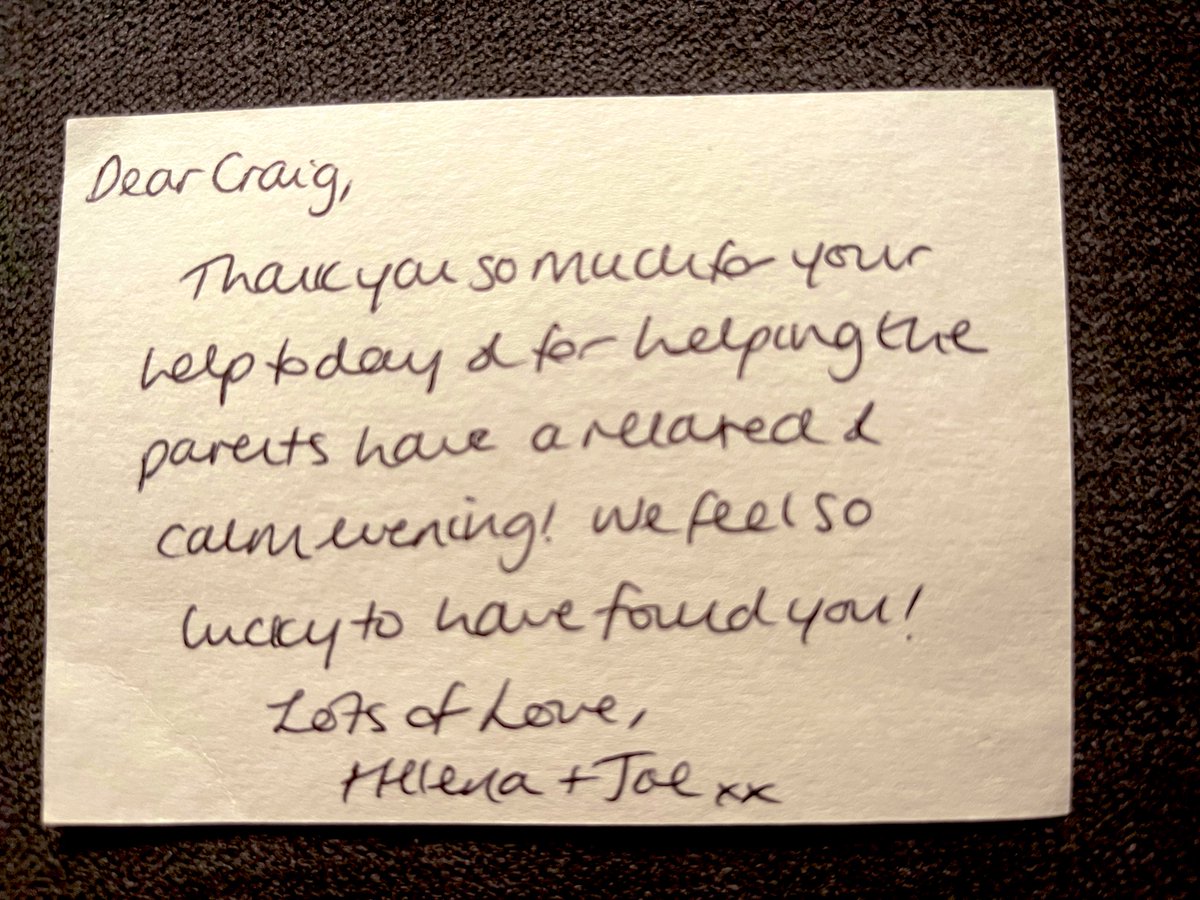 Dear Craig,
Thank you so much for your
help today & for helping the
parents have a relaxed &
calm evening! We feel so
lucky to have found you!
Lots of Love,
Helena + Joe xx